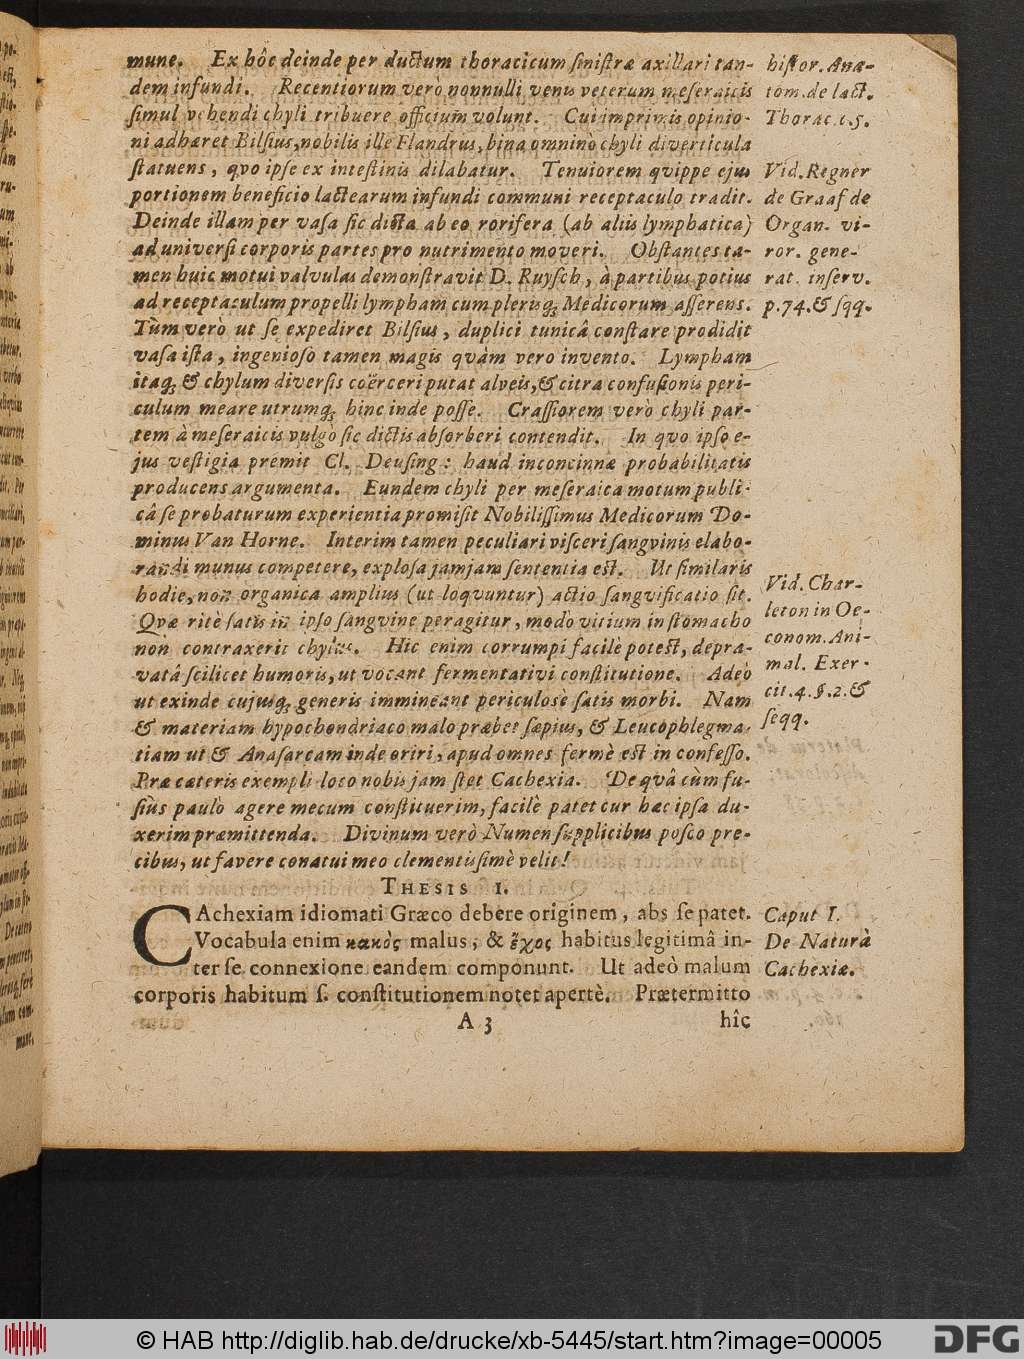 mune. Ex hôc deinde per ductum thoracicum sinistræ axillari tan-
dem infundi. Recentiorum verò nonnulli venis veterum meseraicis
simul vehendi chyli tribuere officium volunt. Cui imprimis opinio-
ni adhæret Bilsius, nobilis ille Flandrus, bina omninò chyli diverticula
statuens, qvo ipse ex intestinis dilabatur. Tenuiorem qvippe ejus
portionem beneficio lactearum infundi communi receptaculo tradit.
Deinde illam per vasa sic dicta ab eo rorifera (ab aliis lymphatica)
ad universi corporis partes pro nutrimento moveri. Obstantes ta-
men huic motui valvulas demonstravit D. Ruysch, à partibus potius
ad receptaculum propelli lympham cum plerisq; Medicorum asserens.
Tùm verò ut se expediret Bilsius, duplici tunicâ constare prodidit
vasa ista, ingenioso tamen magis qvàm vero invento. Lympham
itaq; & chylum diversis coërceri putat alveis, & citra confusionis peri-
culum meare utrumq; hinc inde posse. Crassiorem verò chyli par-
tem à meseraicis vulgò sic dictis absorberi contendit. In qvo ipso e-
jus vestigia premit Cl. Deusing: haud inconcinnæ probabilitatis
producens argumenta. Eundem chyli per meseraica motum publi-
câ se probaturum experientia promisit Nobilissimus Medicorum Do-
minus Van Horne. Interim tamen peculiari visceri sangvinis elabo-
randi munus competere, explosa jamjam sententia est. Ut similaris
hodie, non organica amplius (ut loqvuntur) actio sangvificatio sit.
Qvæ ritè satis in ipso sangvine peragitur, modò vitium in stomacho
non contraxerit chylus. Hic enim corrumpi facilè potest, depra-
vatâ scilicet humoris, ut vocant fermentativi constitutione. Adeò
ut exinde cujusq; generis immineant periculosè satis morbi. Nam
& materiam hypochondriaco malo præbet sæpius, & Leucophlegma-
tiam ut & Anasarcam inde oriri, apud omnes fermè est in confesso.
Præ cæteris exempli loco nobis jam stet Cachexia. De qvâ cùm fu-
siùs paulò agere mecum constituerim, facilè patet cur hæc ipsa du-
xerim præmittenda. Divinum verò Numen supplicibus posco pre-
cibus, ut favere conatui meo clementissimè velit!
THESIS I.
CAchexiam idiomati Græco debere originem, abs se patet.
Vocabula enim κακὸς malus, & ἕχος habitus legitimâ in-
ter se connexione eandem componunt. Ut adeò malum
corporis habitum s. constitutionem notet apertè. Prætermitto
A 3 hîc
histor. Ana-
tom. de lact.
Thorac. c. 5.
Vid. Regner
de Graaf de
Organ. vi-
ror. gene-
rat. inserv.
p. 74. & sqq.
Vid. Char-
leton in Oe-
conom. Ani-
mal. Exer-
cit. 4. §. 2. &
seqq.
Caput I.
De Naturà
Cachexiæ.
© HAB http://diglib.hab.de/drucke/xb-5445/start.htm?image=00005
DFG